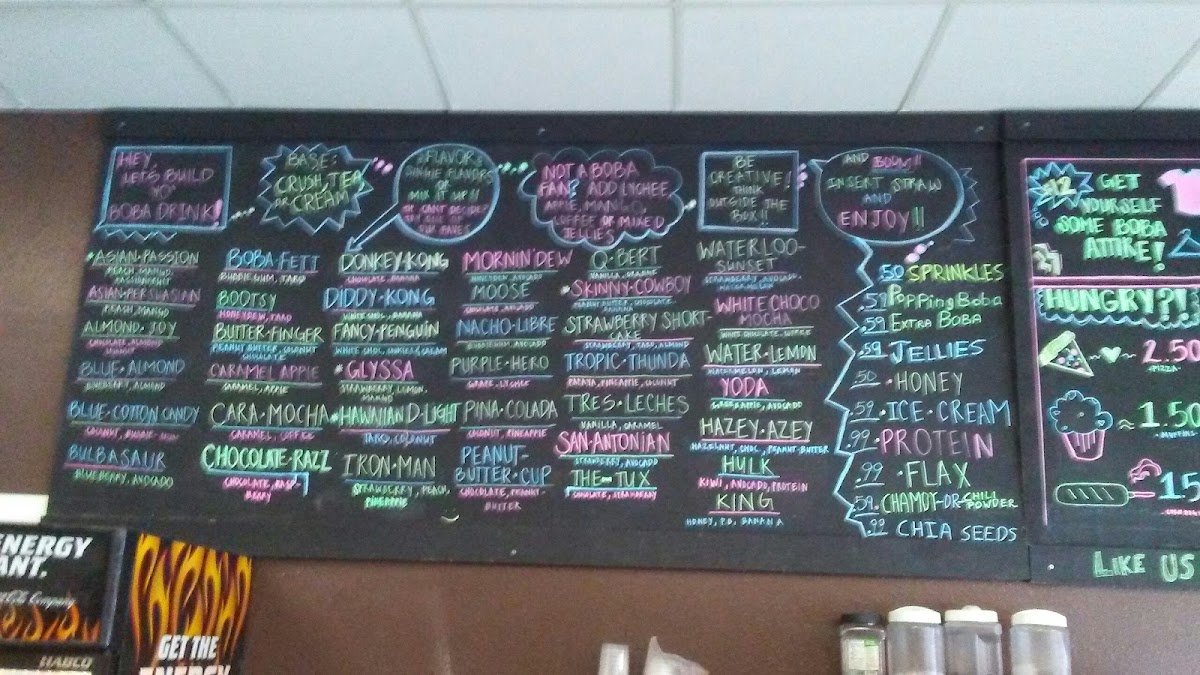 HEY,
LET'S BUILD
YO'
BOBA DRINK!
BASE:
CRUSH, TEA,
OR CREAM
FLAVOR:
SINGLE FLAVORS
OR
MIX IT UP!!
OR CAN'T DECIDE?
TRY ONE OF
OUR FAVES
NOT A BOBA
FAN? ADD LYCHEE,
APPLE, MANGO,
COFFEE OR MIXED
JELLIES
BE
CREATIVE!
THINK
OUTSIDE THE
BOX!!
AND BOOM!!
INSERT STRAW
AND
ENJOY!!
*ASIAN·PASSION
PEACH, MANGO,
ASIAN·PERSUASION
PEACH, MANGO
ALMOND·JOY
CHOCOLATE, ALMOND
COCONUT
BLUE·ALMOND
BLUEBERRY, ALMOND
BLUE·COTTON CANDY
COCONUT, BUBBLE·GUM
BULBASAUR
BLUEBERRY, AVOCADO
BOBA·FETT
BUBBLEGUM, TARO
BOOTSY
HONEYDEW, TARO
BUTTER·FINGER
PEANUT BUTTER, COCONUT
CHOCOLATE
CARAMEL APPLE
CARAMEL, APPLE
CARA·MOCHA
CARAMEL, COFFEE
CHOCOLATE·RAZZ
CHOCOLATE, RASP-
BERRY
DONKEY·KONG
CHOCOLATE, BANANA
DIDDY·KONG
WHITE CHOC, BANANA
FANCY·PENGUIN
WHITE CHOC, COOKIES, CREAM
*GLYSSA
STRAWBERRY, LEMON,
MANGO
*HAWAIIAN D-LIGHT
TARO, COCONUT
IRON·MAN
STRAWBERRY, PEACH,
PINEAPPLE
MORNIN'DEW
HONEYDEW, AVOCADO
MOOSE
CHOCOLATE, AVOCADO
NACHO·LIBRE
PURPLE·HERO
GRAPE, LYCHEE
PINA·COLADA
COCONUT, PINEAPPLE
PEANUT-
BUTTER·CUP
CHOCOLATE, PEANUT-
BUTTER
Q·BERT
VANILLA, ORANGE
*SKINNY·COWBOY
PEANUT BUTTER, CHOCOLATE,
BANANA
STRAWBERRY SHORT-
CAKE
STRAWBERRY, TARO, ALMOND
TROPIC·THUNDA
PAPAYA, PINEAPPLE, COCONUT
TRES·LECHES
VANILLA, CARAMEL
SAN·ANTONIAN
STRAWBERRY, AVOCADO
THE-TUX
CHOCOLATE, STRAWBERRY
WATERLOO-
SUNSET
STRAWBERRY, AVOCADO,
WATERMELON
WHITE CHOCO
MOCHA
WHITE CHOCOLATE, COFFEE
WATER·LEMON
WATERMELON, LEMON
YODA
GREEN APPLE, AVOCADO
HAZEY·AZEY
HAZELNUT, CHOC, PEANUT·BUTTER
HULK
KIWI, AVOCADO, PROTEIN
KING
HONEY, P.B, BANANA
.50 SPRINKLES
.59 POPPING BOBA
.59 EXTRA BOBA
.59 JELLIES
.50 ·HONEY
.59 ·ICE·CREAM
.99 ·PROTEIN
.99 ·FLAX
.59 ·CHAMOY-OR-CHILI
POWDER
.99 CHIA SEEDS
GET
YOURSELF
SOME BOBA
ATTIRE!
HUNGRY?!?
2.50
·PIZZA·
≈ 1.50
·MUFFINS·
LIKE US
ENERGY
ANT.
GET THE
ENERGY